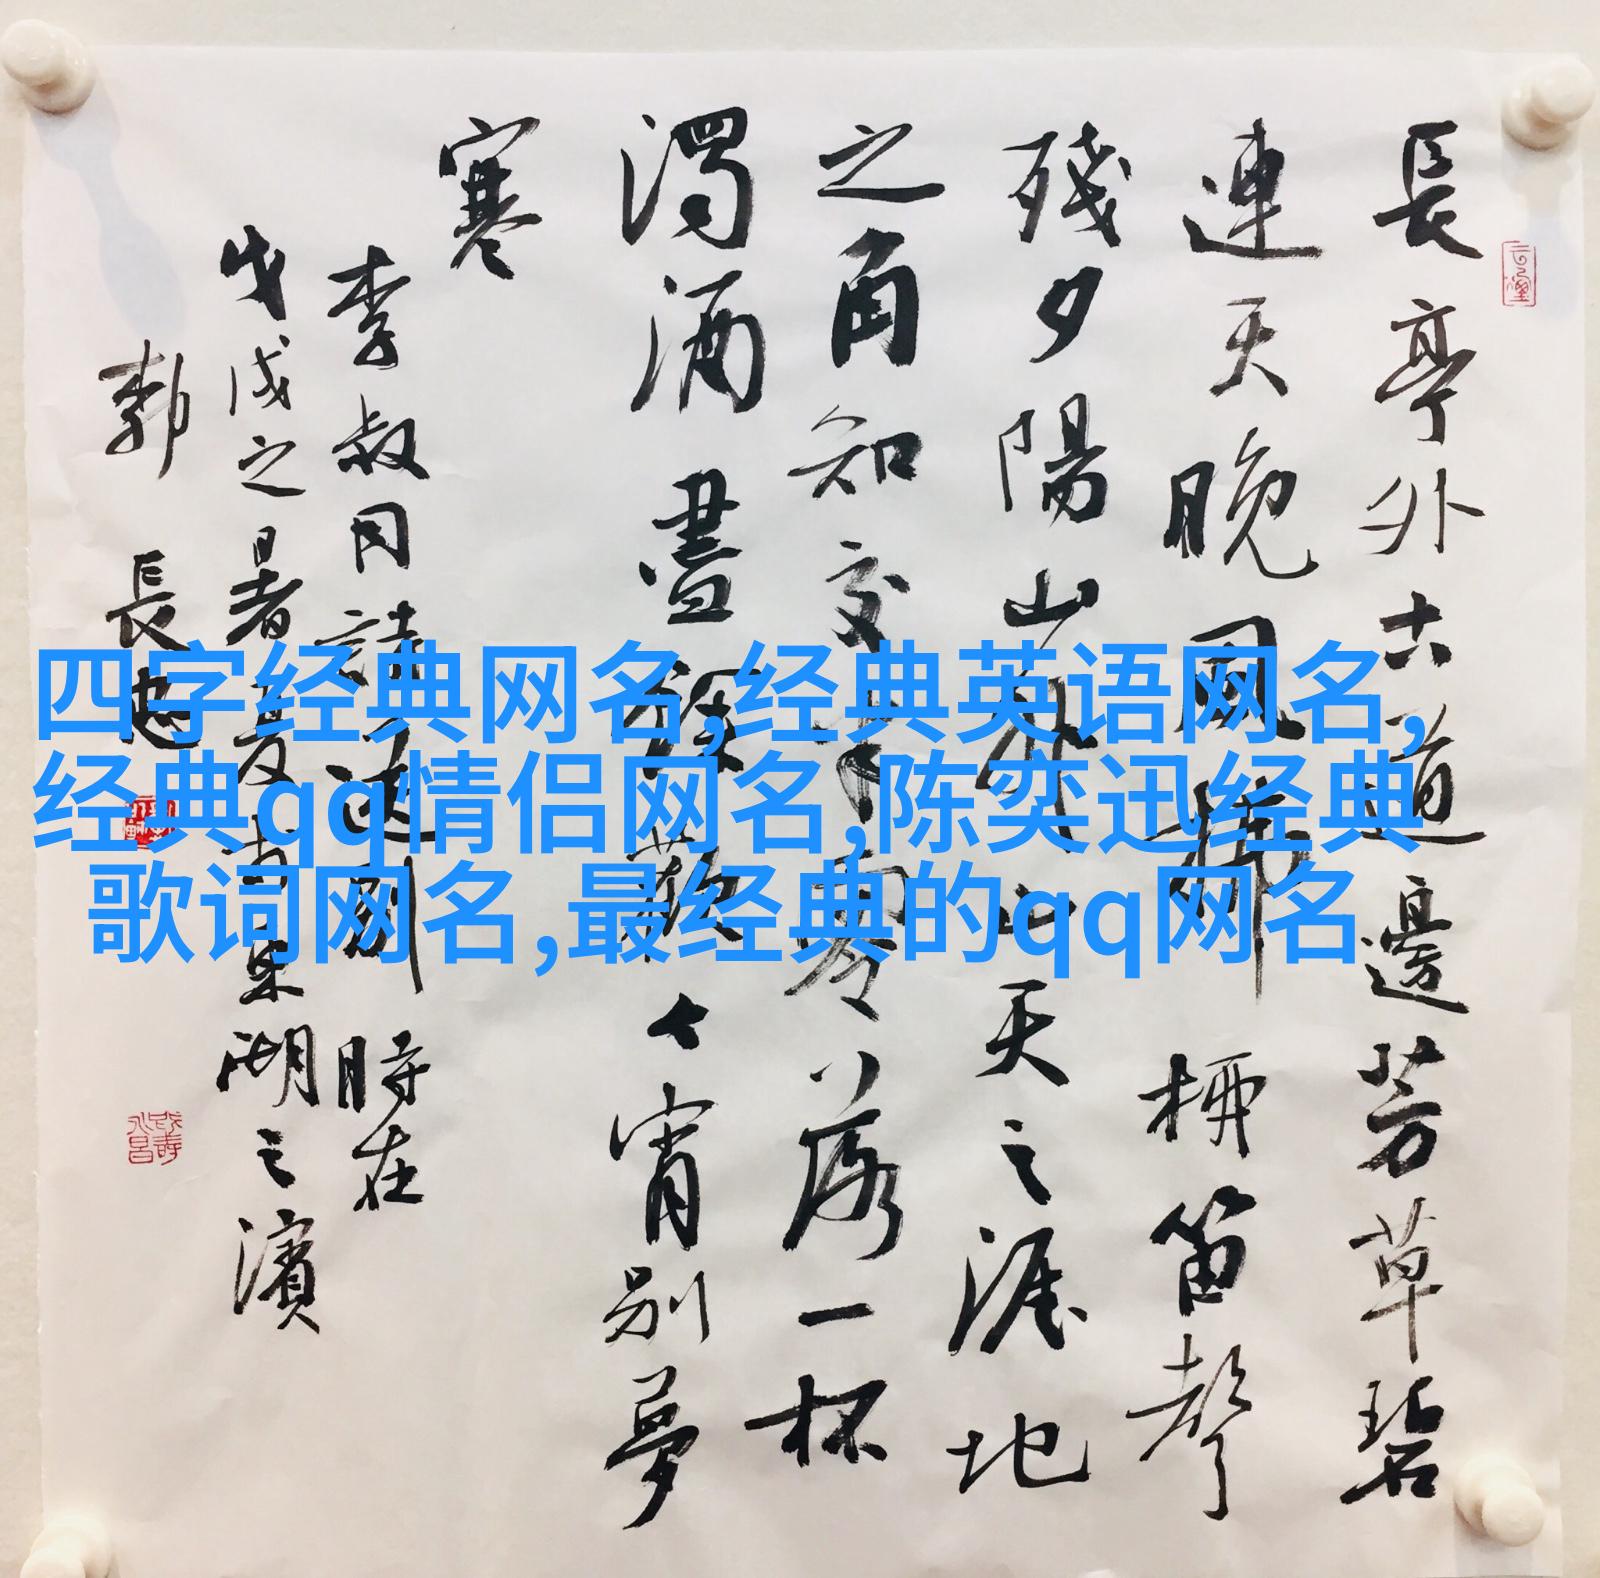 長亭外古道邊芳草碧
連天晚風拂柳笛聲
殘夕陽山外山天之涯地
之角知交半零落一杯
濁酒盡餘歡今宵別夢
寒
李叔同詩送別 時在
戊戌之暑夏 東湖之濱
郭 長
四字经典网名,经典英语网名,
经典qq情侣网名,陈奕迅经典
歌词网名,最经典的qq网名